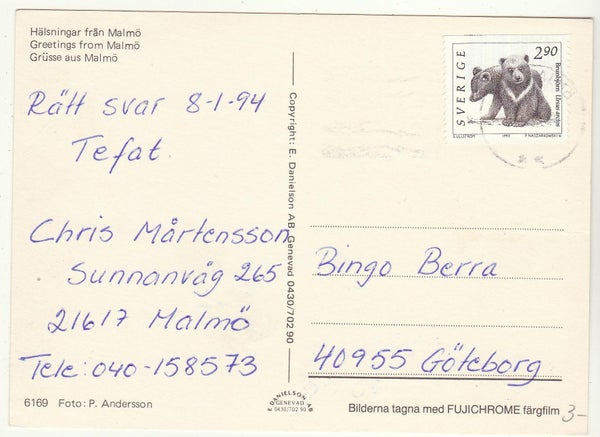 Hälsningar från Malmö
Greetings from Malmö
Grüsse aus Malmö
Rätt svar 8-1-94
Tefat.
Chris Mårtensson
Sunnanväg 265
21617 Malmö
Tele: 040-158573
6169 Foto: P. Andersson
Copyright: E. Danielson AB, Genevad 0430/702 90
E DANIELSON AB
GENEVAD
0430/702 90
SVERIGE
2.90
Brunbjörn Ursus arctos
1993
Bingo Berra
40955 Göteborg
Bilderna tagna med FUJICHROME färgfilm
3-